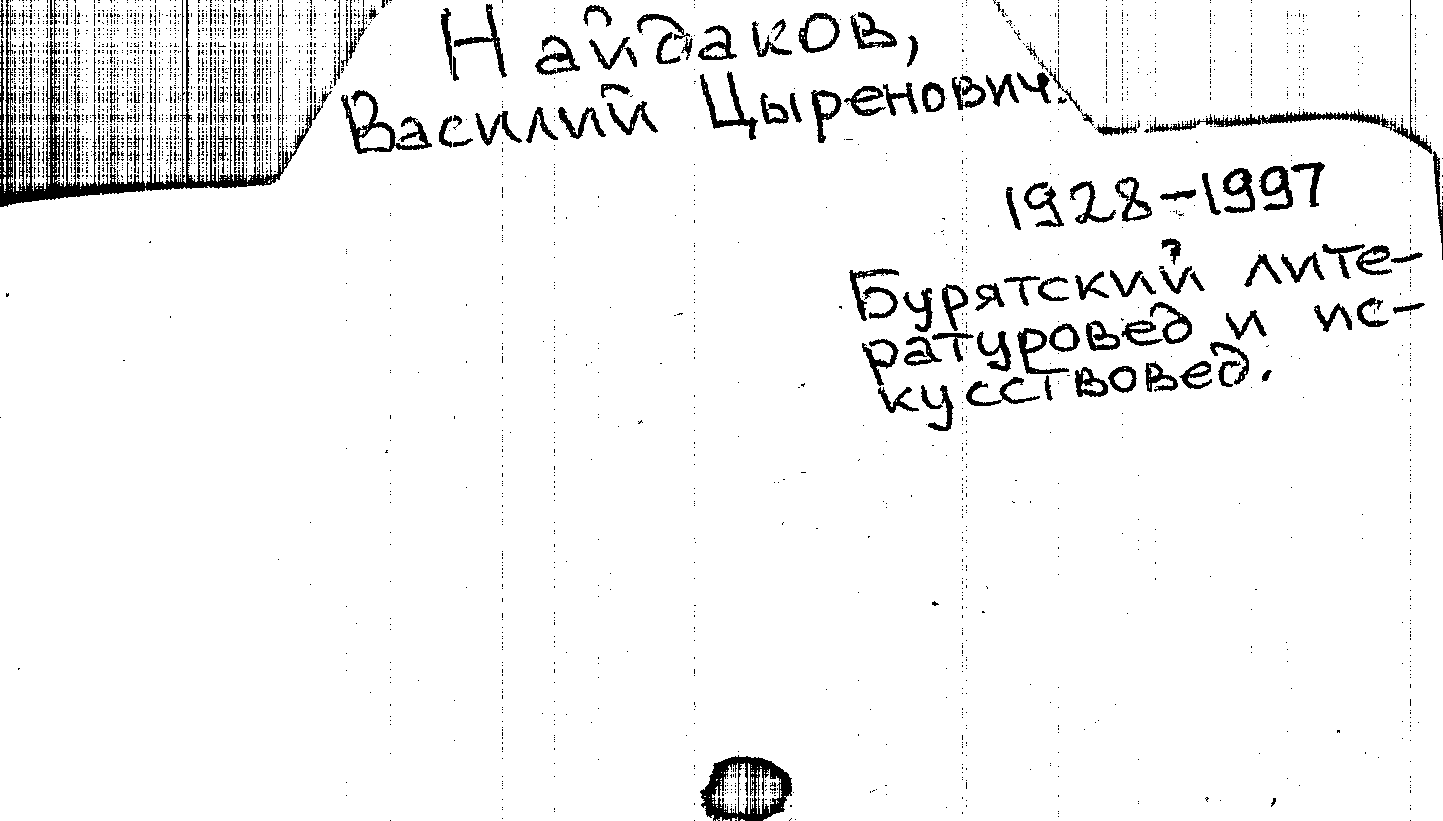 Найдаков,
Василий Цыренович.
1928-1997
Бурятский лите-
ратуровед и ис-
кусствовед.